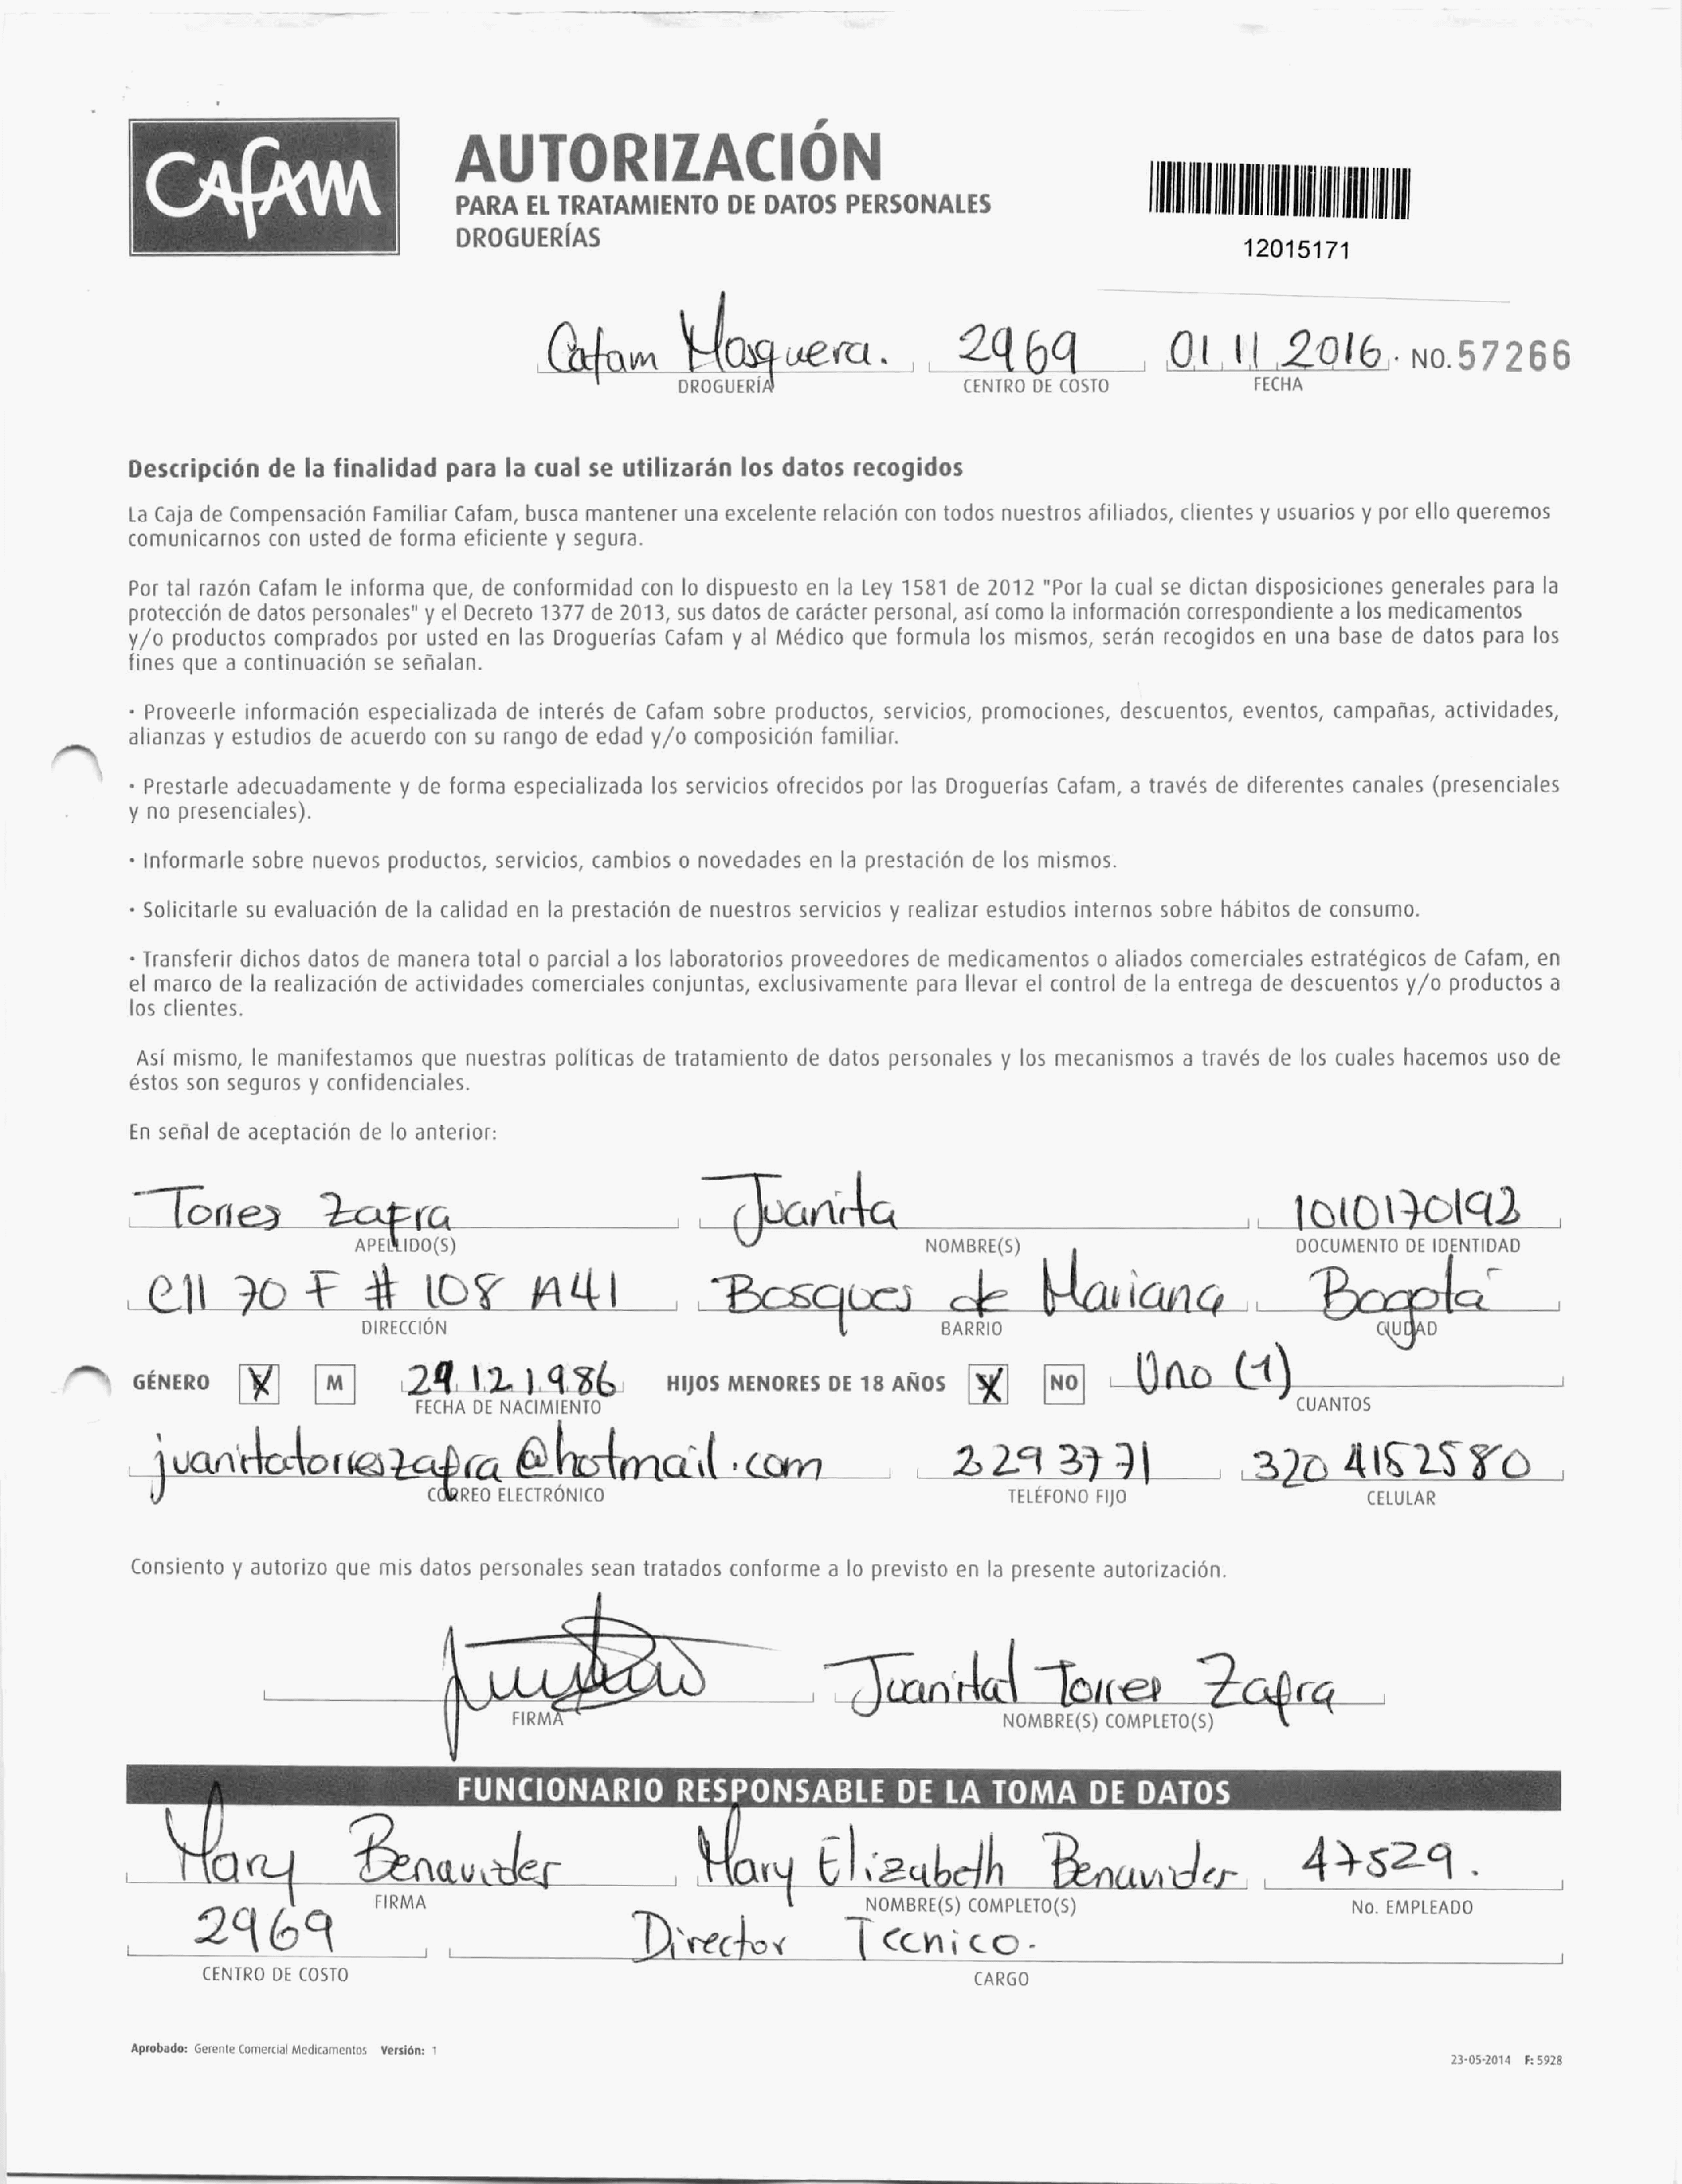 CAFAM
AUTORIZACIÓN
PARA EL TRATAMIENTO DE DATOS PERSONALES
DROGUERÍAS
12015171
Cafam Mosquera. 2969 01 11 2016. NO. 57266
DROGUERÍA CENTRO DE COSTO FECHA
Descripción de la finalidad para la cual se utilizarán los datos recogidos
La Caja de Compensación Familiar Cafam, busca mantener una excelente relación con todos nuestros afiliados, clientes y usuarios y por ello queremos
comunicarnos con usted de forma eficiente y segura.
Por tal razón Cafam le informa que, de conformidad con lo dispuesto en la Ley 1581 de 2012 "Por la cual se dictan disposiciones generales para la
protección de datos personales" y el Decreto 1377 de 2013, sus datos de carácter personal, así como la información correspondiente a los medicamentos
y/o productos comprados por usted en las Droguerías Cafam y al Médico que formula los mismos, serán recogidos en una base de datos para los
fines que a continuación se señalan.
· Proveerle información especializada de interés de Cafam sobre productos, servicios, promociones, descuentos, eventos, campañas, actividades,
alianzas y estudios de acuerdo con su rango de edad y/o composición familiar.
· Prestarle adecuadamente y de forma especializada los servicios ofrecidos por las Droguerías Cafam, a través de diferentes canales (presenciales
y no presenciales).
· Informarle sobre nuevos productos, servicios, cambios o novedades en la prestación de los mismos.
· Solicitarle su evaluación de la calidad en la prestación de nuestros servicios y realizar estudios internos sobre hábitos de consumo.
· Transferir dichos datos de manera total o parcial a los laboratorios proveedores de medicamentos o aliados comerciales estratégicos de Cafam, en
el marco de la realización de actividades comerciales conjuntas, exclusivamente para llevar el control de la entrega de descuentos y/o productos a
los clientes.
Así mismo, le manifestamos que nuestras políticas de tratamiento de datos personales y los mecanismos a través de los cuales hacemos uso de
éstos son seguros y confidenciales.
En señal de aceptación de lo anterior:
Torres Zafra Juanita 1010170192
APELLIDO(S) NOMBRE(S) DOCUMENTO DE IDENTIDAD
Cll 70 F # 108 A41 Bosques de Mariana Bogotá
DIRECCIÓN BARRIO CIUDAD
GÉNERO X M 29 12 1986 HIJOS MENORES DE 18 AÑOS X NO Uno (1)
FECHA DE NACIMIENTO CUANTOS
juanitatorreszafra@hotmail.com 2293771 320 4152580
CORREO ELECTRÓNICO TELÉFONO FIJO CELULAR
Consiento y autorizo que mis datos personales sean tratados conforme a lo previsto en la presente autorización.
Juanital Torres Zafra
FIRMA NOMBRE(S) COMPLETO(S)
FUNCIONARIO RESPONSABLE DE LA TOMA DE DATOS
Mary Benavides Mary Elizabeth Benavides 47529.
FIRMA NOMBRE(S) COMPLETO(S) No. EMPLEADO
2969 Director Tecnico.
CENTRO DE COSTO CARGO
Aprobado: Gerente Comercial Medicamentos Versión: 1
23-05-2014 F: 5928